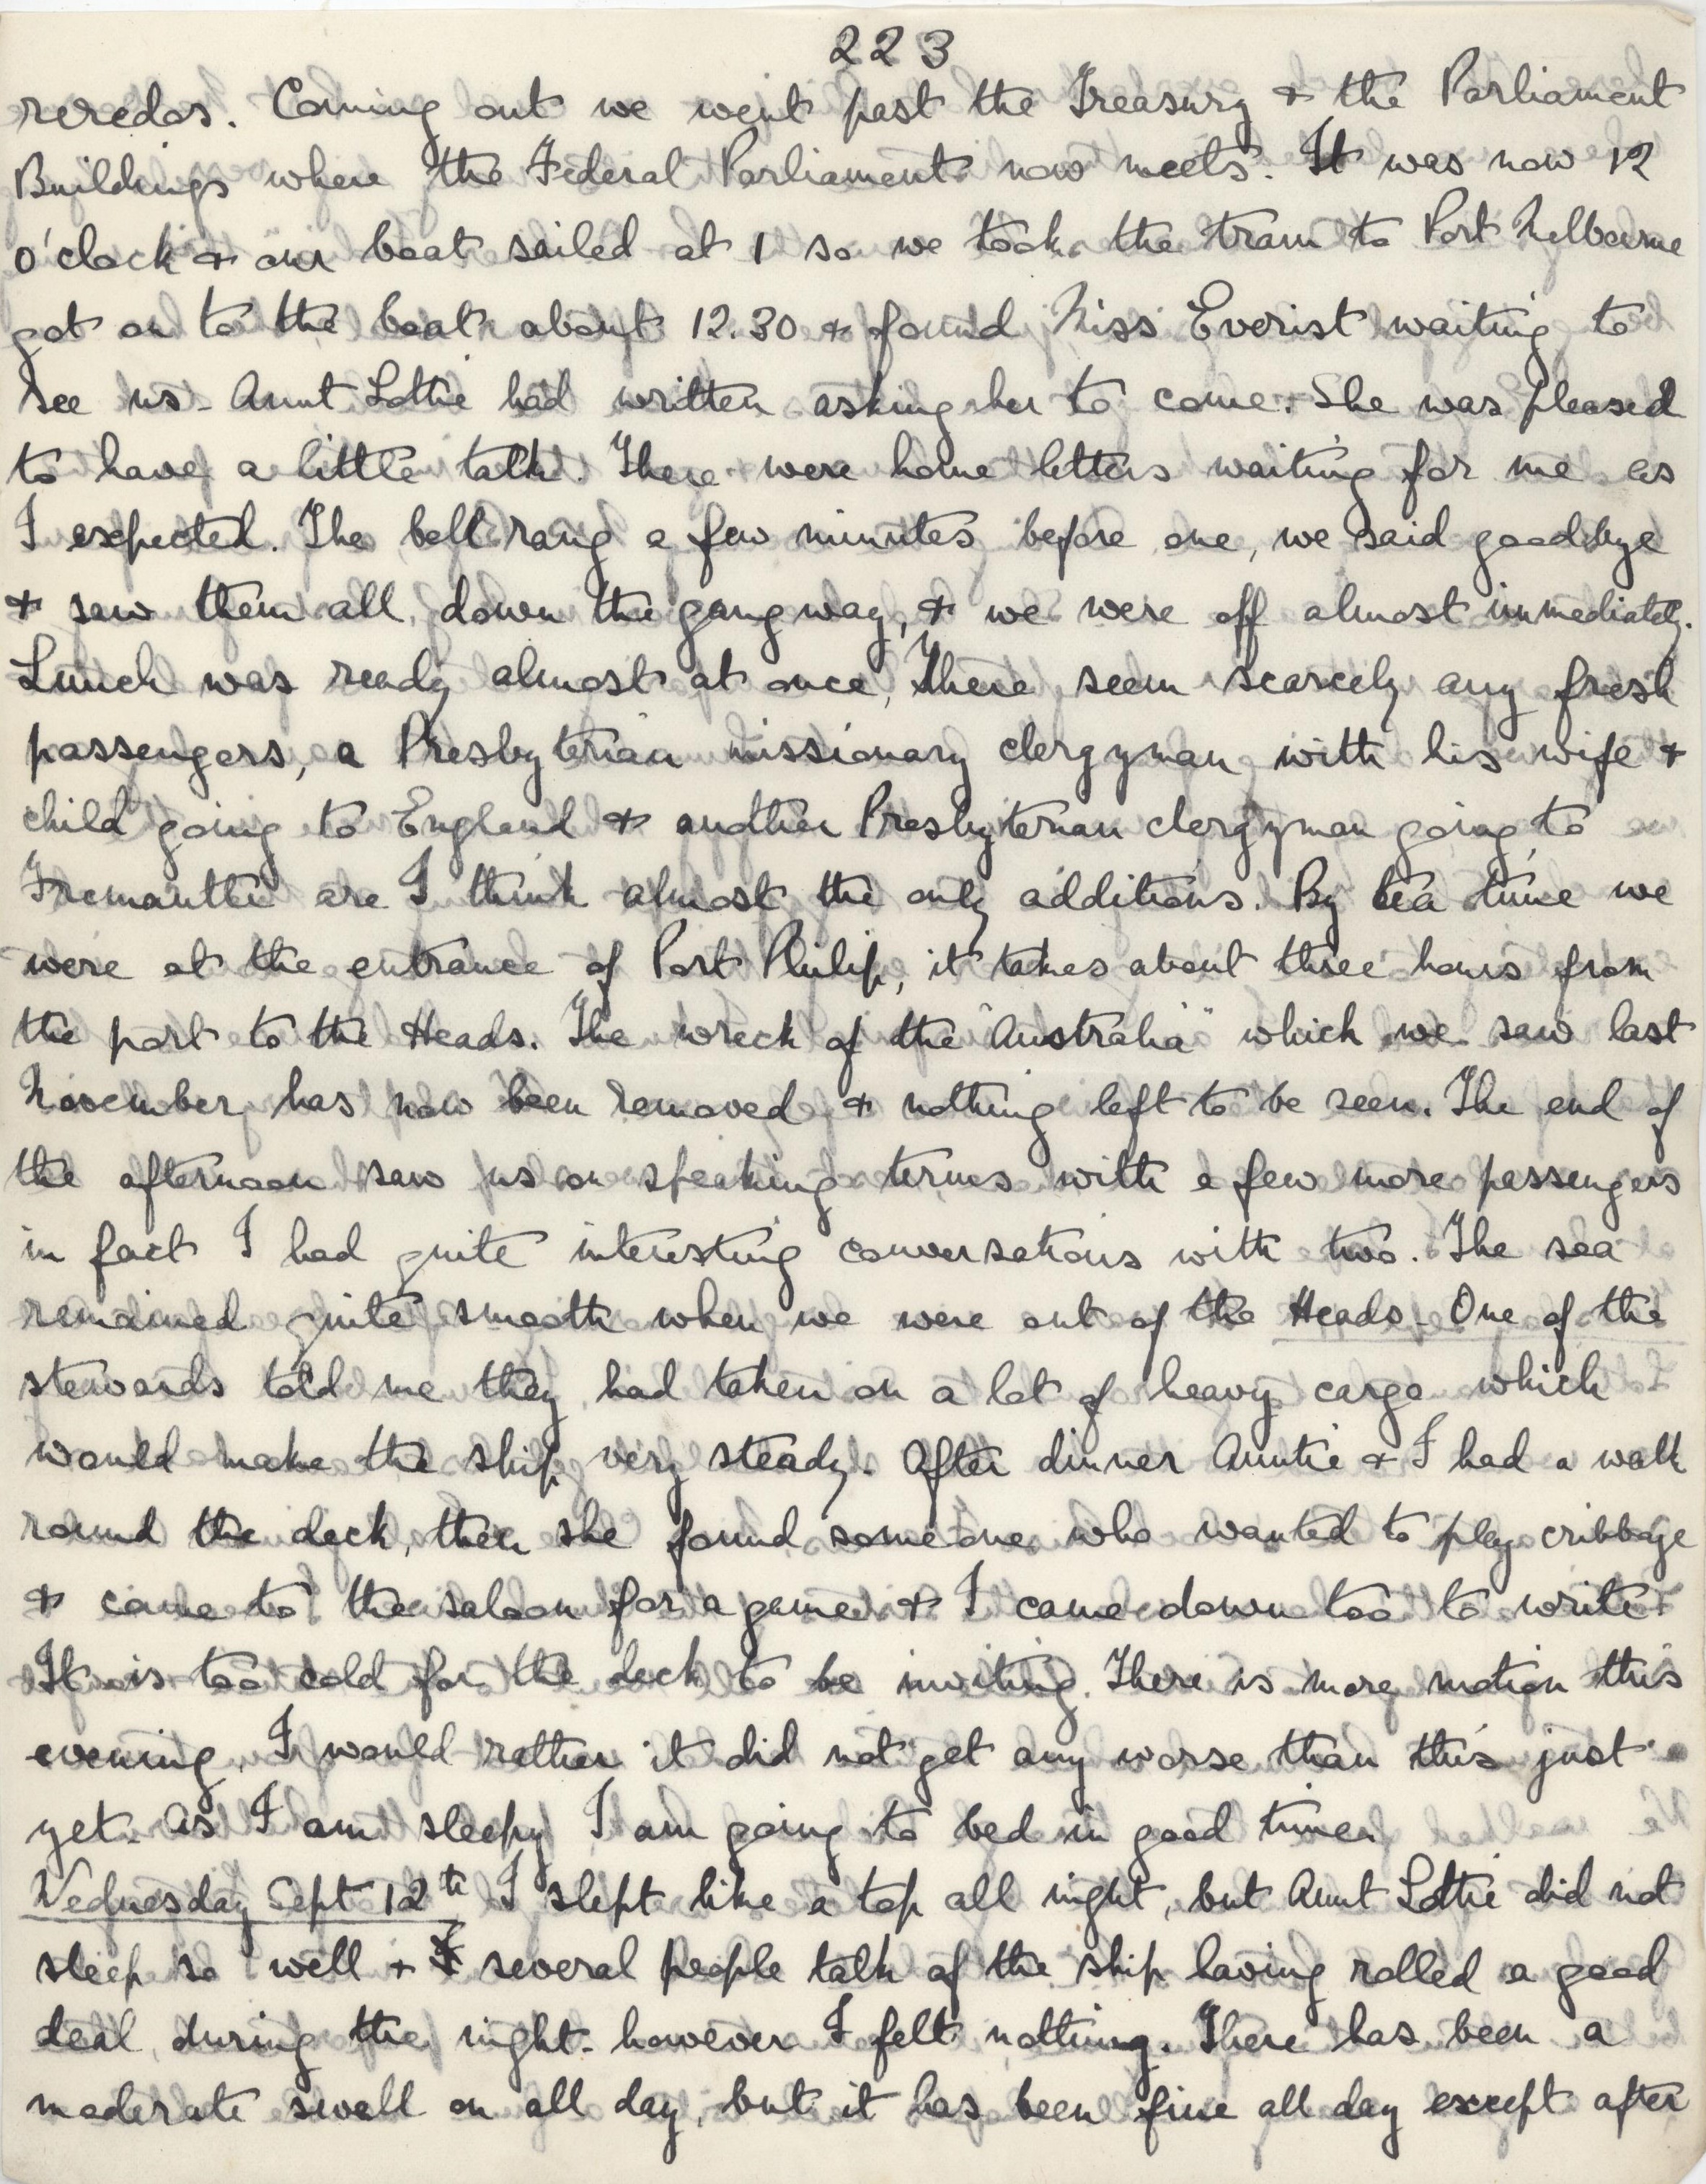 223
reredos. Coming out we went past the Treasury & the Parliament
Buildings where the Federal Parliament now meets. It was now 12
o'clock & our boat sailed at 1 so we took the tram to Port Melbourne
got on to the boat about 12.30 & found Miss Everist waiting to
see us - Aunt Lottie had written asking her to come. She was pleased
to have a little talk. There were home letters waiting for me as
I expected. The bell rang a few minutes before one, we said goodbye
& saw them all down the gangway, & we were off almost immediately.
Lunch was ready almost at once, There seem scarcely any fresh
passengers, a Presbyterian missionary clergyman with his wife &
child going to England & another Presbyterian clergyman going to
Fremantle are I think almost the only additions. By tea time we
were at the entrance of Port Philip, it takes about three hours from
the port to the Heads. The wreck of the "Australia" which we saw last
November has now been removed & nothing left to be seen. The end of
the afternoon saw us on speaking terms with a few more passengers
in fact I had quite interesting conversations with two. The sea
remained quite smooth when we were out of the Heads - One of the
stewards told me they had taken on a lot of heavy cargo which
would make the ship very steady. After dinner Auntie & I had a walk
round the deck, then she found someone who wanted to play cribbage
& came to the saloon for a game & I came down too to write.
It is too cold for the deck to be inviting. There is more motion this
evening. I would rather it did not get any worse than this just
yet. As I am sleepy I am going to bed in good time.
Wednesday Sept 12th I slept like a top all night, but Aunt Lottie did not
sleep so well & several people talk of the ship having rolled a good
deal during the night - however I felt nothing. There has been a
moderate swell on all day, but it has been fine all day except after